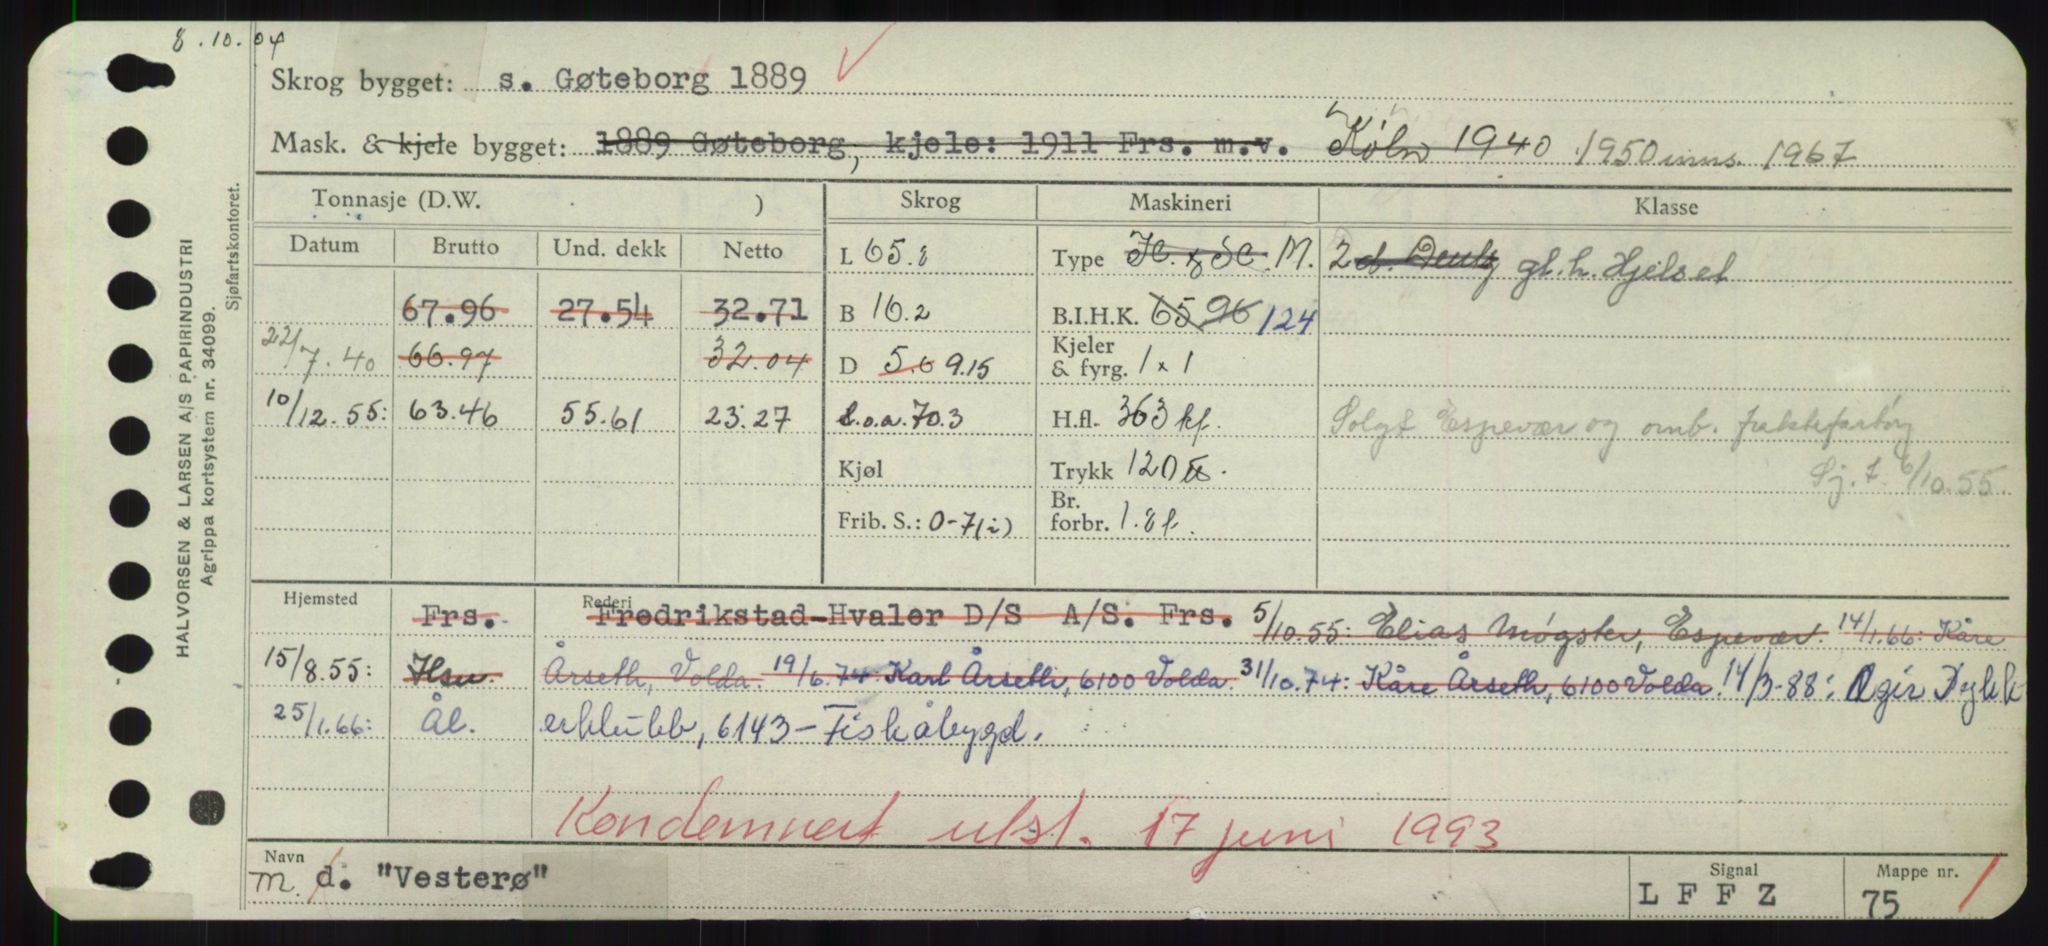 8.10.04
Skrog bygget: s. Gøteborg 1889
Mask. & kjele bygget: 1889 Gøteborg, kjele: 1911 Frs. m.v. Köln 1940 1950 inns. 1967
Tonnasje (D.W. ) Skrog Maskineri Klasse
Datum Brutto Und. dekk Netto L 65.8 Type H. & SC. M. 2 d. Deutz gl. h. Hjelset
67.96 27.54 32.71 B 16.2 B.I.H.K. 65 96 124
22/7.40 66.97 32.04 D 5.6 9.15 Kjeler & fyrg. 1 x 1
10/12.55: 63.46 55.61 23.27 L.o.a. 70.3 H.fl. 363 kf. Solgt Espevær og omb. fraktefartøy
Kjøl Trykk 120 lbs. Sj. t. 6/10.55.
Frib. S.: 0-7(i) Br. forbr. 1.8 t.
Hjemsted Frs. Rederi Fredrikstad-Hvaler D/S A/S. Frs. 5/10.55: Elias Møgster, Espevær. 14/1.66: Kåre
15/8.55: Hsu. Årseth, Volda. 19/6.74 Karl Årseth, 6100 Volda. 31/10.74: Kåre Årseth, 6100 Volda. 14/3-88: Ægir Dykk
25/1.66: Ål. erklubb, 6143 - Fiskåbygd.
Kondemnert utsl. 17 juni 1993
Navn m. d. "Vesterø" Signal L F F Z Mappe nr. 75 1
HALVORSEN & LARSEN A/S PAPIRINDUSTRI
Agrippa kortsystem nr. 34099.
Sjøfartskontoret.